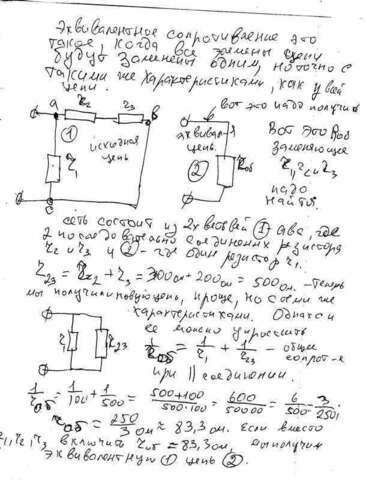 Эквивалентное сопротивление это
такое, когда все элемены цепи
будут заменены одним, но точно с
такими же характеристиками, как у всей
цепи.
вот это надо получить
a r2 r3 B
1
исходная
цепь
r1
c
эквивал-я
цепь.
2
Rоб
Вот это Rоб
заменяющее
r1, r2 и r3
надо
найти.
сеть состоит из 2х ветвей 1 авс, где
2 последовательно соединених резистора
r2 и r3 и 2 - где один резистор r1.
r23 = r2 + r3 = 300ом + 200ом = 500ом. -теперь
мы получили новую цепь, проще, но с теми же
характеристиками. Однако и
ее можно упростить
r1 r23
1/rоб = 1/r1 + 1/r23 - общее
сопрот-е
при || соединении.
1/rоб = 1/100 + 1/500 = 500+100/500·100 = 600/50000 = 6/500 = 3/250;
rоб = 250/3 ом ≈ 83,3ом. Если вместо
r1, r2, r3 включить rоб ≈ 83,3ом, вы получим
эквивалентную 1 цепь 2.